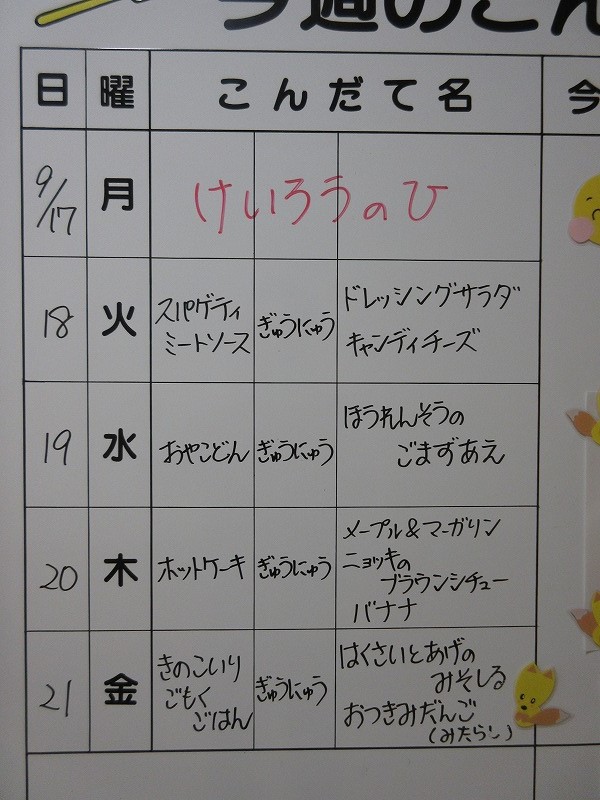 今週のこん
日 曜 こんだて名 今
9/17 月 けいろうのひ
18 火 スパゲティ ミートソース ぎゅうにゅう ドレッシングサラダ キャンディチーズ
19 水 おやこどん ぎゅうにゅう ほうれんそうの ごまずあえ
20 木 ホットケーキ ぎゅうにゅう メープル&マーガリン ニョッキの ブラウンシチュー バナナ
21 金 きのこいり ごもく ごはん ぎゅうにゅう はくさいとあげの みそしる おつきみだんご (みたらし)